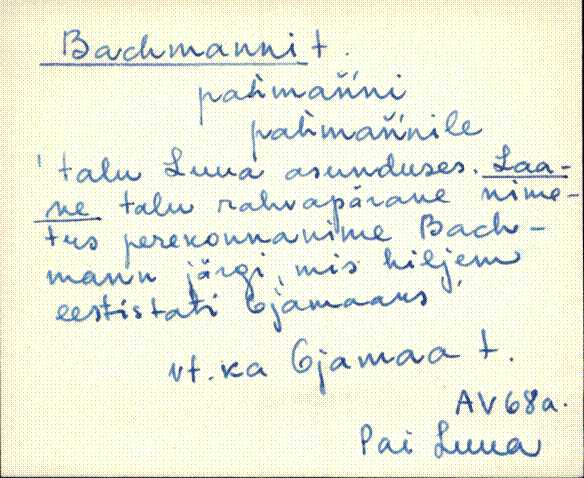 Bachmanni t.
pahmańńi
pahmańńile
'talu Luua asunduses. Laa-
ne talu rahvapärane nime-
tus perekonnanime Bach-
mann järgi, mis hiljem
eestistati Ojamaaks'
vt. ka Ojamaa t.
AV 68a.
Pai Luua